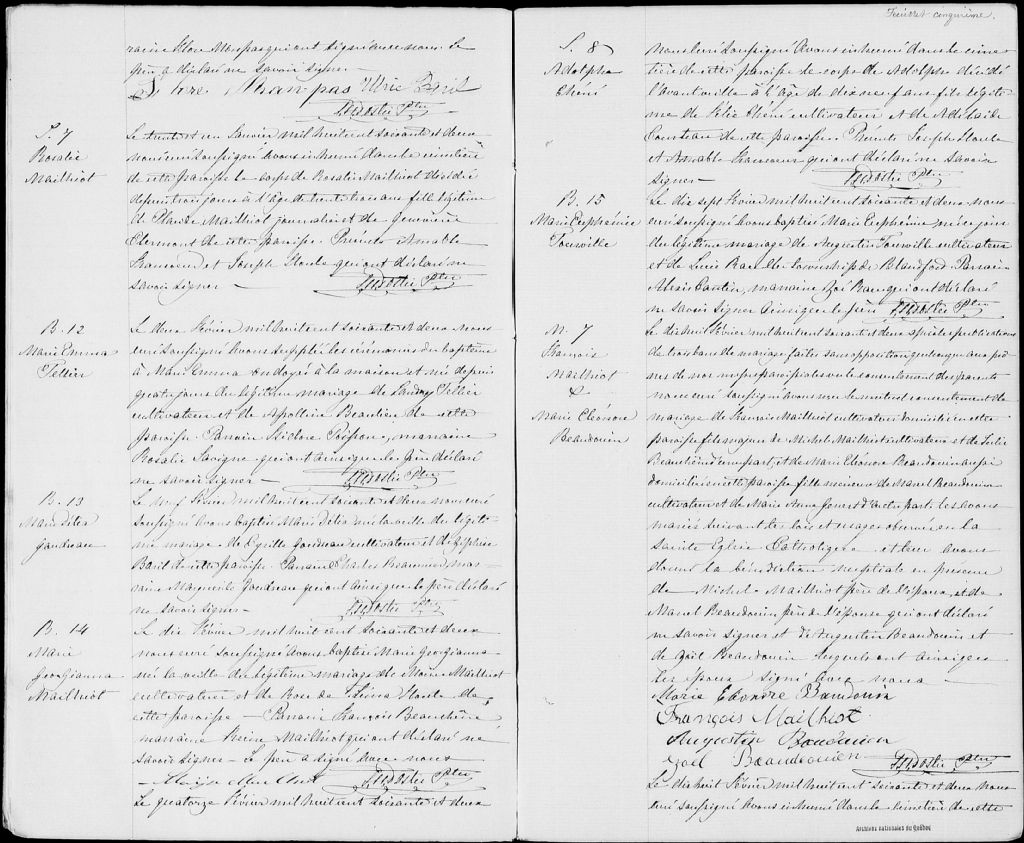 Feuillet cinquième.
raine Flore Manpas qui ont signé avec nous. Le
père a déclaré ne savoir signer.
Flore Manpas Ulric Baril
Ptre
S. 7
Rosalie
Mailhiot
Le trente et un Janvier mil huit cent soixante et deux
nous curé soussigné avons inhumé dans le cimetière
de cette paroisse le corps de Rosalie Mailhiot décédée
depuis trois jours à l'âge de trente trois ans fille légitime
de Mailhiot journalier et de Geneviève
Clermont de cette paroisse. Présents Amable
et Joseph Houle qui ont déclaré ne
savoir signer
Ptre
B. 12
Marie Emma
Pellerin
Le deux Février mil huit cent soixante et deux nous
curé soussigné avons suppléé les cérémonies du baptême
à Marie Emma ondoyée à la maison et née depuis
quatre jours du légitime mariage de
cultivateur et de Apolline Beaulieu de cette
paroisse. Parrain Isidore Poisson, marraine
Rosalie Lavigne qui ont ainsi que le père déclaré
ne savoir signer
Ptre
B. 13
Marie Délia
Gaudreau
Le neuf Février mil huit cent soixante et deux nous curé
soussigné avons baptisé Marie Délia née la veille du légiti-
me mariage de Cyrille Gaudreau cultivateur et de Zéphise
Baril de cette paroisse. Parrain Charles mar-
raine Marguerite Gaudreau qui ont ainsi que le père déclaré
ne savoir signer
Ptre
B. 14
Marie
Georgianna
Mailhiot
Le dix Février mil huit cent soixante et deux
nous curé soussigné avons baptisé Marie Georgianna
née la veille du légitime mariage de Moïse Mailhiot
cultivateur et de Rose de Houle de
cette paroisse Parrain François Beauchêne
marraine Mailhiot qui ont déclaré ne
savoir signer Le père a signé avec nous
Ptre
Le quatorze Février mil huit cent soixante et deux
S. 8
Adolphe
Chéné
nous curé soussigné avons inhumé dans le cime-
tière de cette paroisse le corps de Adolphe décédé
l'avant veille à l'âge de fils légiti-
me de Félix Chéné cultivateur et de Adélaïde
Courteau de cette paroisse. Présents Joseph Houle
et Amable qui ont déclaré ne savoir
signer
Ptre
B. 15
Marie Euphémie
Tourville
Le dix sept Février mil huit cent soixante et deux nous
curé soussigné avons baptisé Marie Euphémie née ce jour
du légitime mariage de Augustin Tourville cultivateur
et de Lucie du township de Blandford. Parrain
Alexis Cantin, marraine Zoé qui ont déclaré
ne savoir signer ainsi que le père
Ptre
M. 7
François
Mailhiot
&
Marie Eléonore
Beaudouin
Le dix huit Février mil huit cent soixante et deux après la publication
de trois bans de mariage faite sans opposition quelconque aux prô-
nes de nos messes paroissiales vu le consentement des parents
nous curé soussigné avons reçu le mutuel consentement de
mariage de François Mailhiot cultivateur domicilié en cette
paroisse fils majeur de Michel Mailhiot cultivateur et de
d'une part, et de Marie Eléonore Beaudouin aussi
domiciliée en cette paroisse fille mineure de Marcel Beaudouin
cultivateur et de Marie Anne d'autre part. Les avons
mariés suivant les lois et usages observés en la
Sainte Eglise Catholique et leur avons
donné la bénédiction nuptiale en présence
de Michel Mailhiot père de l'époux, et de
Marcel Beaudouin père de l'épouse qui ont déclaré
ne savoir signer et de Augustin Beaudouin et
de Joël Beaudouin lesquels ont ainsi que
les époux signé avec nous
Marie Eleonore Baudouin
François Mailhiot
Augustin Baudouin
Joël Beaudouin
Ptre
Le dix huit Février mil huit cent soixante et deux nous
curé soussigné avons inhumé dans le cimetière de cette
Archives nationales du Québec